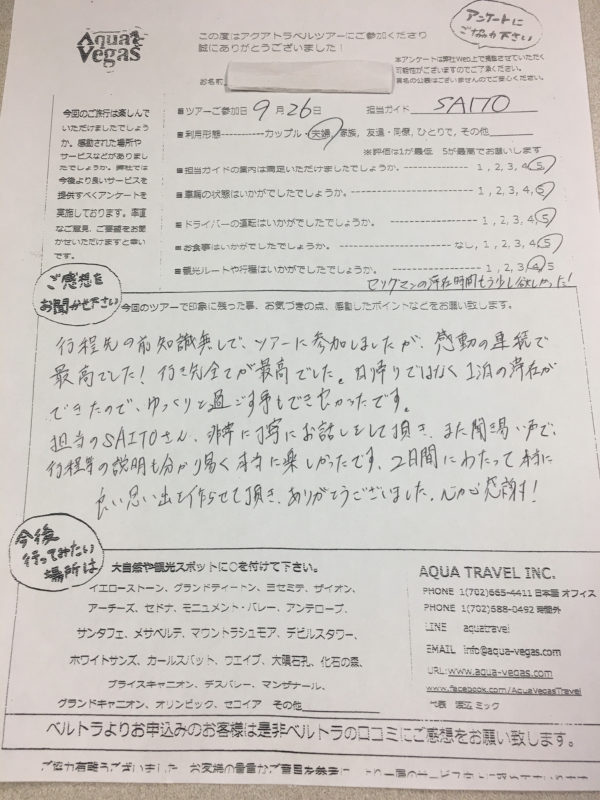 Aqua Vegas
この度はアクアトラベルツアーにご参加くださり
誠にありがとうございました！
アンケートに
ご協力下さい
本アンケートは弊社Web上で掲載させていただく
可能性がございますのでご了承ください。
実名の公表はございませんのでご安心ください。
お名前
今回のご旅行は楽しんで
いただけましたでしょう
か。感動された場所や
サービスなどがありまし
たでしょうか。弊社では
今後より良いサービスを
提供すべくアンケートを
実施しております。率直
なご意見、ご要望をお聞
かせいただけますと幸い
です。
■ツアーご参加日 9月26日 担当ガイド SAITO
■利用形態----------カップル・夫婦、家族、友達・同僚、ひとりで、その他
※評価は1が最低 5が最高でお願いします
■担当ガイドの案内は満足いただけましたでしょうか。 1, 2, 3, 4, 5
■車輌の状態はいかがでしたでしょうか。 1, 2, 3, 4, 5
■ドライバーの運転はいかがでしたでしょうか。 1, 2, 3, 4, 5
■お食事はいかがでしたでしょうか。 なし, 1, 2, 3, 4, 5
■観光ルートや行程はいかがでしたでしょうか。 1, 2, 3, 4, 5
セリグマンの滞在時間もう少し欲しかった！
ご感想を
お聞かせ下さい
今回のツアーで印象に残った事、お気づきの点、感動したポイントなどをお願い致します。
行程先の前知識無しで、ツアーに参加しましたが、感動の連続で
最高でした！行き先全てが最高でした。日帰りではなく1泊の滞在が
できたので、ゆっくりと過ごす事もでき良かったです。
担当のSAITOさん、非常に丁寧にお話しをして頂き、また聞き易い声で、
行程等の説明も分かり易く本当に楽しかったです。2日間にわたって本当に
良い思い出を作らせて頂き、ありがとうございました。心から感謝！
今後
行ってみたい
場所は
大自然や観光スポットに○を付けて下さい。
イエローストーン、グランドティートン、ヨセミテ、ザイオン、
アーチーズ、セドナ、モニュメント・バレー、アンテロープ、
サンタフェ、メサベルテ、マウントラシュモア、デビルスタワー、
ホワイトサンズ、カールスバット、ウエイブ、大隕石孔、化石の森、
ブライスキャニオン、デスバレー、マンザナール、
グランドキャニオン、オリンピック、セコイア その他
AQUA TRAVEL INC.
PHONE 1(702)665-4411 日本語 オフィス
PHONE 1(702)588-0492 時間外
LINE aquatravel
EMAIL info@aqua-vegas.com
URL: www.aqua-vegas.com
www.facebook.com/AquaVegasTravel
代表 渡辺 ミック
ベルトラよりお申込みのお客様は是非ベルトラの口コミにご感想をお願い致します。